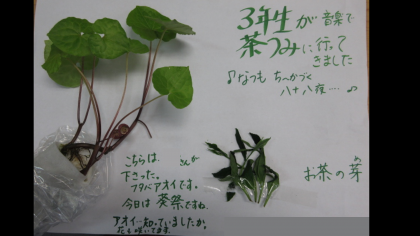 3年生が 音楽で
茶つみに行って
きました
♪なつも ちかづく
八十八夜…. ♪
お茶の芽
め
こちらは さんが
下さった。
フタバアオイです。
今日は 葵祭ですね。
アオイ知っていましたか。
花も咲いてます